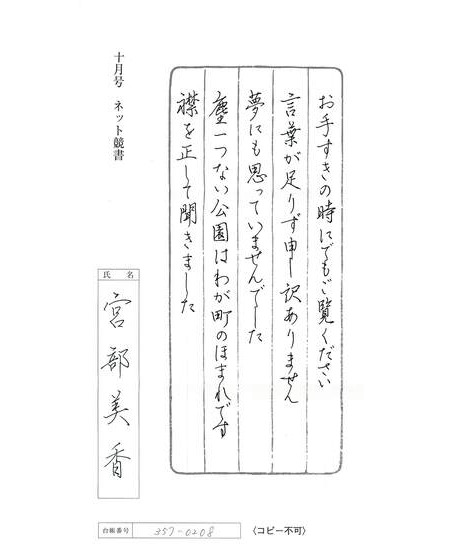 お手すきの時にでもご覧ください
言葉が足りず申し訳ありません
夢にも思っていませんでした
塵一つない公園はわが町のほまれです
襟を正して聞きました
十月号 ネット競書
氏名
宮部美香
台帳番号 357-0208
〈コピー不可〉